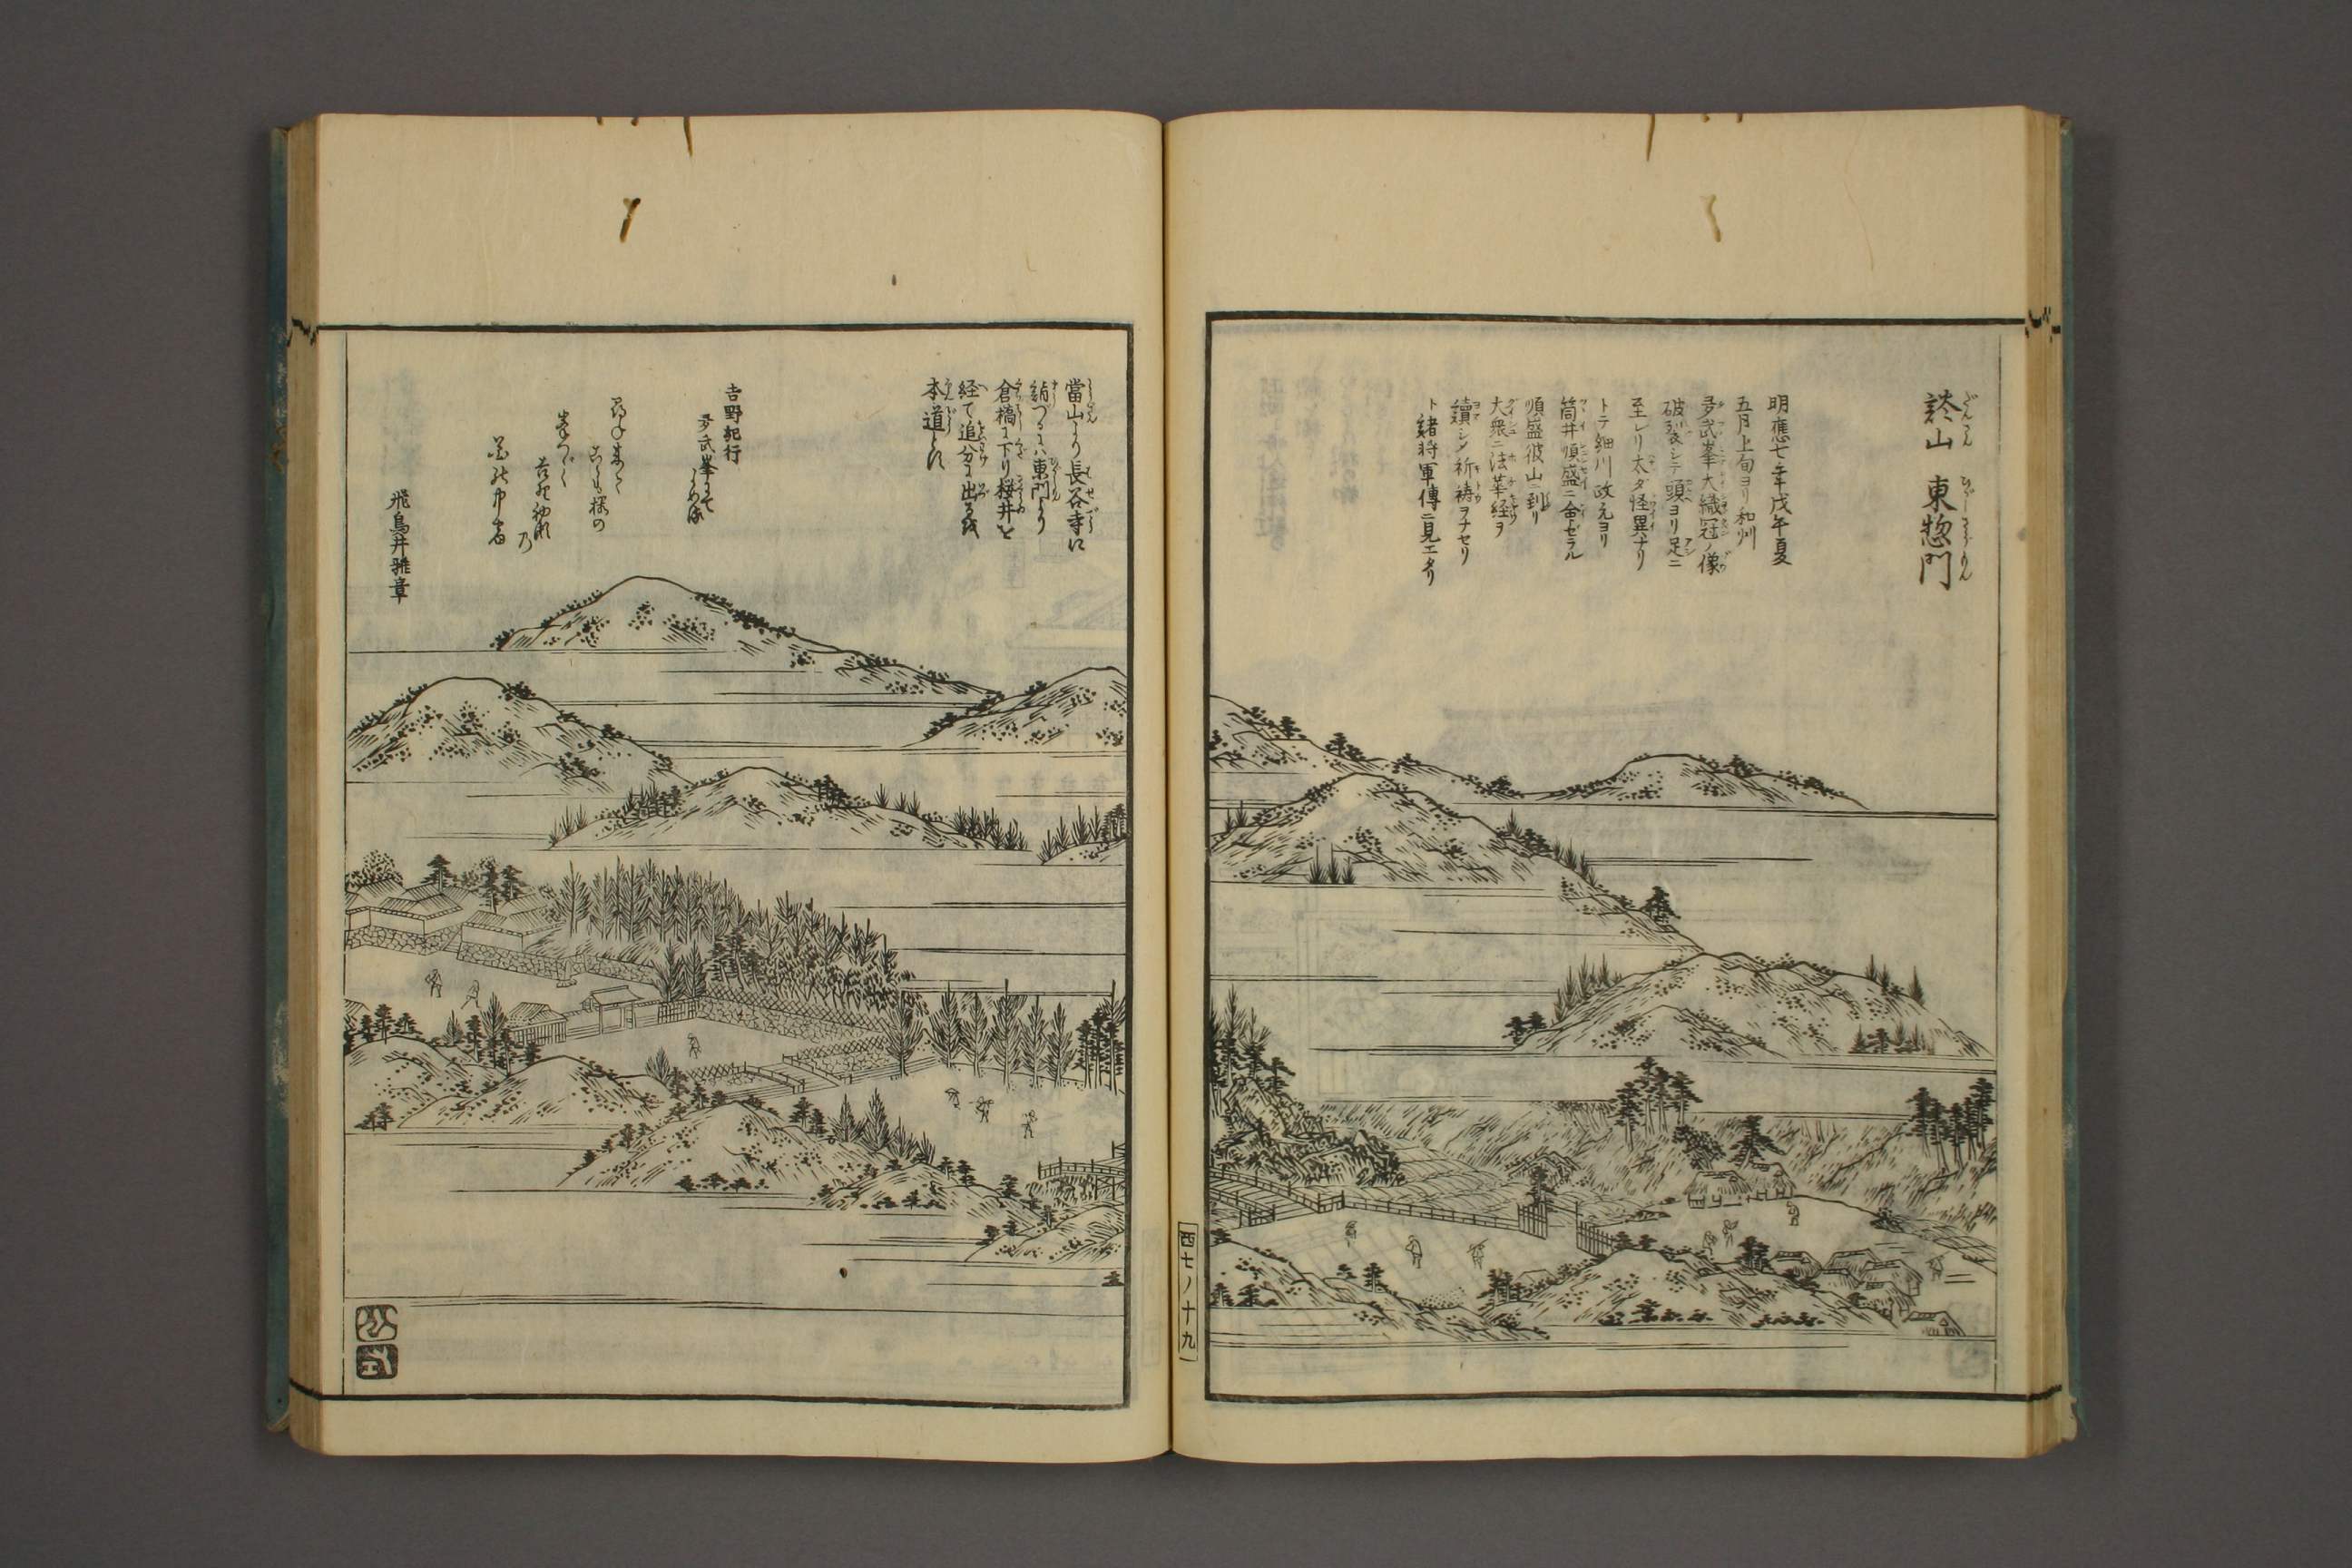 談山 東惣門
明應七年戊午夏
五月上旬ヨリ和州
多武峯大織冠ノ像
破裂シテ頭ヨリ足ニ
至レリ太ダ怪異ナリ
トテ細川政元ヨリ
筒井順盛ニ命ゼラル
順盛彼山ニ到リ
大衆ニ法華経ヲ
讀シメ祈祷ヲナセリ
ト諸将軍傳ニ見エタリ
當山より長谷寺に
詣づるにハ東門より
倉橋に下り桜井を
経て追分に出るを
本道とす
吉野紀行
多武峯にて
飛鳥井雅章
西七ノ十九